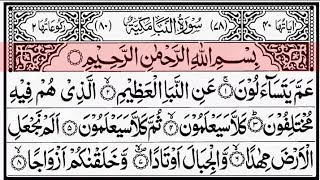 اٰیَاتُهَا ۴۰ (۷۸) سُوْرَةُ النَّبَاِ مَكِّيَّةٌ (۸۰) رُكُوْعَاتُهَا ۲
بِسْمِ اللّٰهِ الرَّحْمٰنِ الرَّحِیْمِ
عَمَّ یَتَسَآءَلُوْنَ ۝۱ عَنِ النَّبَاِ الْعَظِیْمِ ۝۲ الَّذِیْ هُمْ فِیْهِ
مُخْتَلِفُوْنَ ۝۳ كَلَّا سَیَعْلَمُوْنَ ۝۴ ثُمَّ كَلَّا سَیَعْلَمُوْنَ ۝۵ اَلَمْ نَجْعَلِ
الْاَرْضَ مِهٰدًا ۝۶ وَّالْجِبَالَ اَوْتَادًا ۝۷ وَّخَلَقْنٰكُمْ اَزْوَاجًا ۝۸